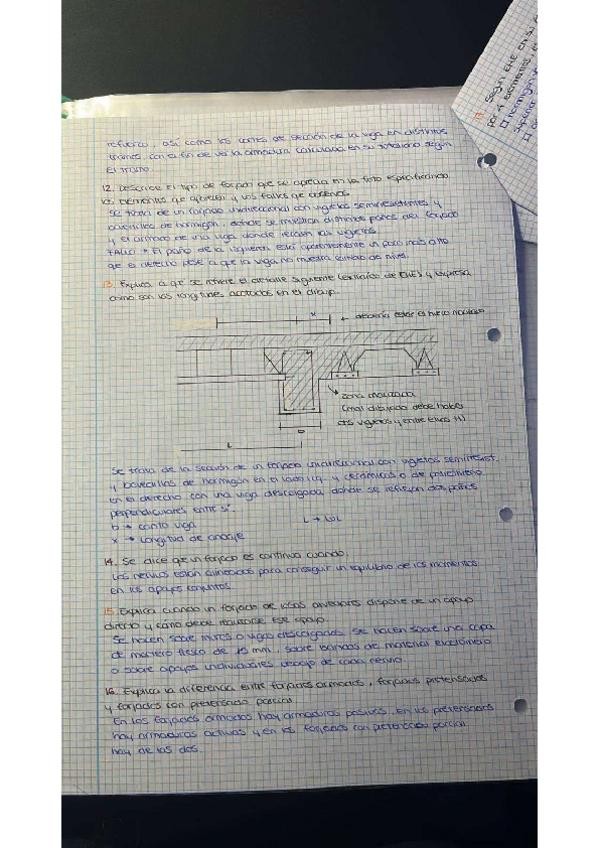 refuerzo, así como los cortes de sección de la viga en distintos
tramos, con el fin de ver la armadura calculada en su totalidad según
el tramo.
12. Describe el tipo de forjado que se aprecia en la foto especificando
los elementos que aparecen y los fallos que contiene.
Se trata de un forjado unidireccional con viguetas semirresistentes y
bovedillas de hormigón, donde se muestran distintos paños del forjado
y el armado de una viga donde recaen las viguetas.
FALLO → El paño de la izquierda está aparentemente un poco más alto
que el derecho pese a que la viga no muestra cambio de nivel.
13. Explica a qué se refiere el detalle siguiente (extraído de EHE) y expresa
cómo son las longitudes acotadas en el dibujo.
x
← debería estar el nervio
→ zona macizada
(mal dibujado debe haber
dos viguetas y entre ellas
b
L
Se trata de la sección de un forjado unidireccional con viguetas semirresist.
y bovedillas de hormigón en el lado izq. y cerámicas o de poliestireno
en el derecho con una viga descolgada, donde se reflejan dos paños
perpendiculares entre sí.
b → canto viga
L → Luz
x → Longitud de anclaje
14. Se dice que un forjado es continuo cuando,
Los nervios están alineados para conseguir un equilibrio de los momentos
en los apoyos conjuntos.
15. Explica cuando un forjado de losas alveolares dispone de un apoyo
directo y cómo debe realizarse ese apoyo.
Se hacen sobre muros o vigas descolgadas. Se hacen sobre una capa
de mortero fresco de 15 mm, sobre bandas de material elastómero
o sobre apoyos individuales debajo de cada nervio.
16. Explica la diferencia entre forjados armados, forjados pretensados
y forjados con pretensado parcial.
En los forjados armados hay armaduras pasivas, en los pretensados
hay armaduras activas y en los forjados con pretensado parcial
hay de las dos.
17. Según EHE en su a
por 4 elementos, e
□ hormigón
superior
□